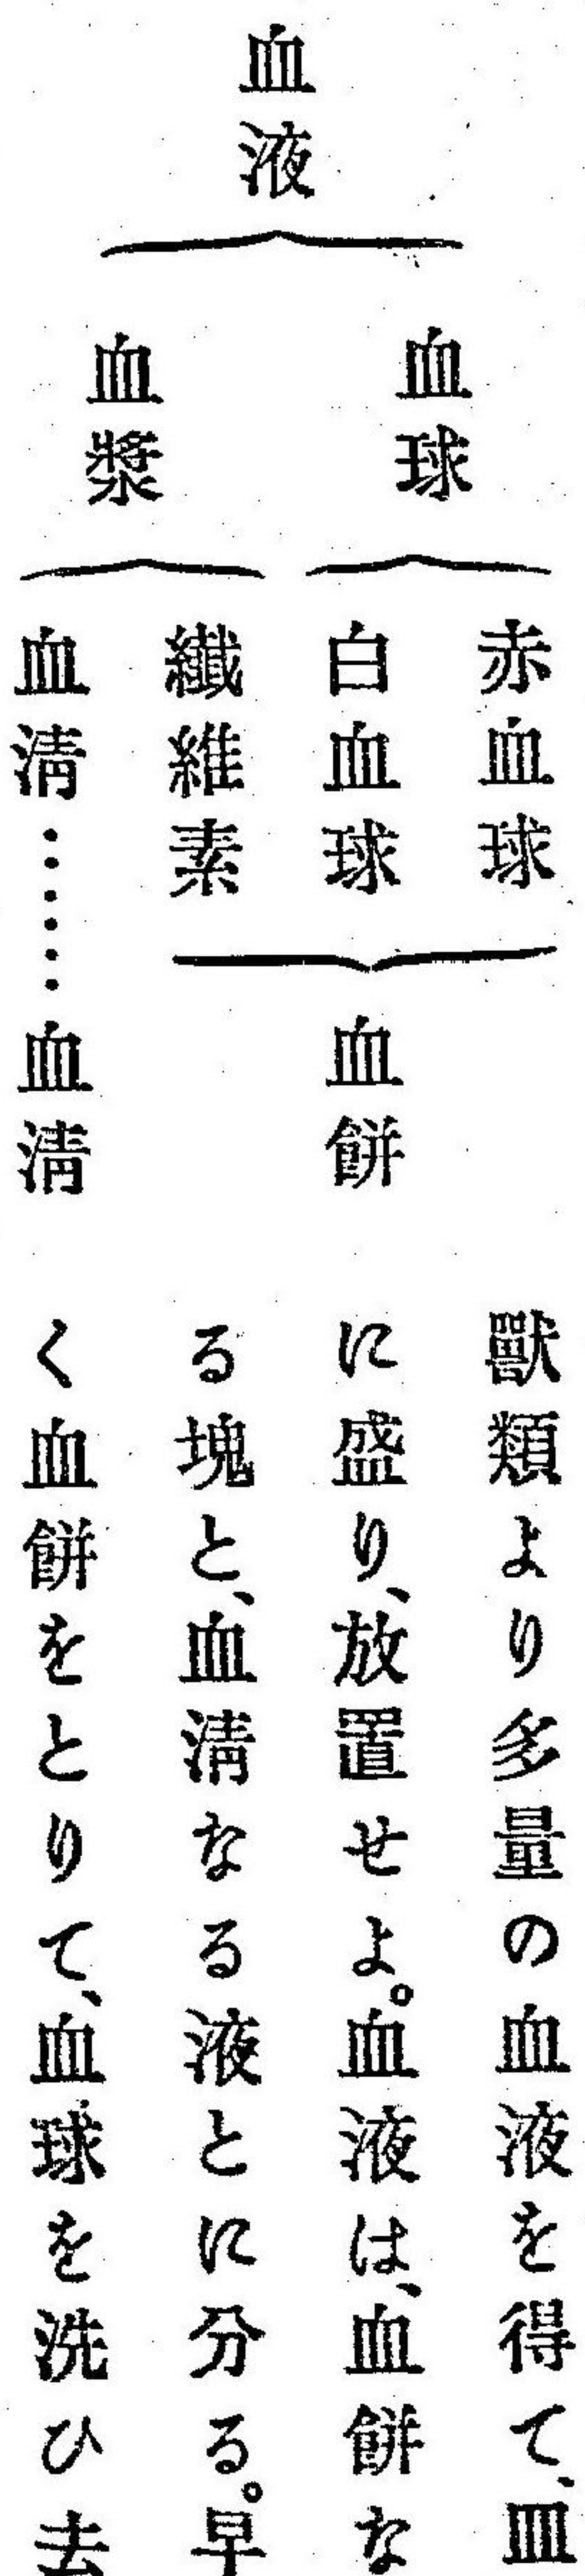 血液
血球
血漿
赤血球
白血球
纎維素
血淸……血淸
血餅
獸類より多量の血液を得て、皿
に盛り、放置せよ。血液は、血餅な
る塊と、血淸なる液とに分る。早
く血餅をとりて、血球を洗ひ去